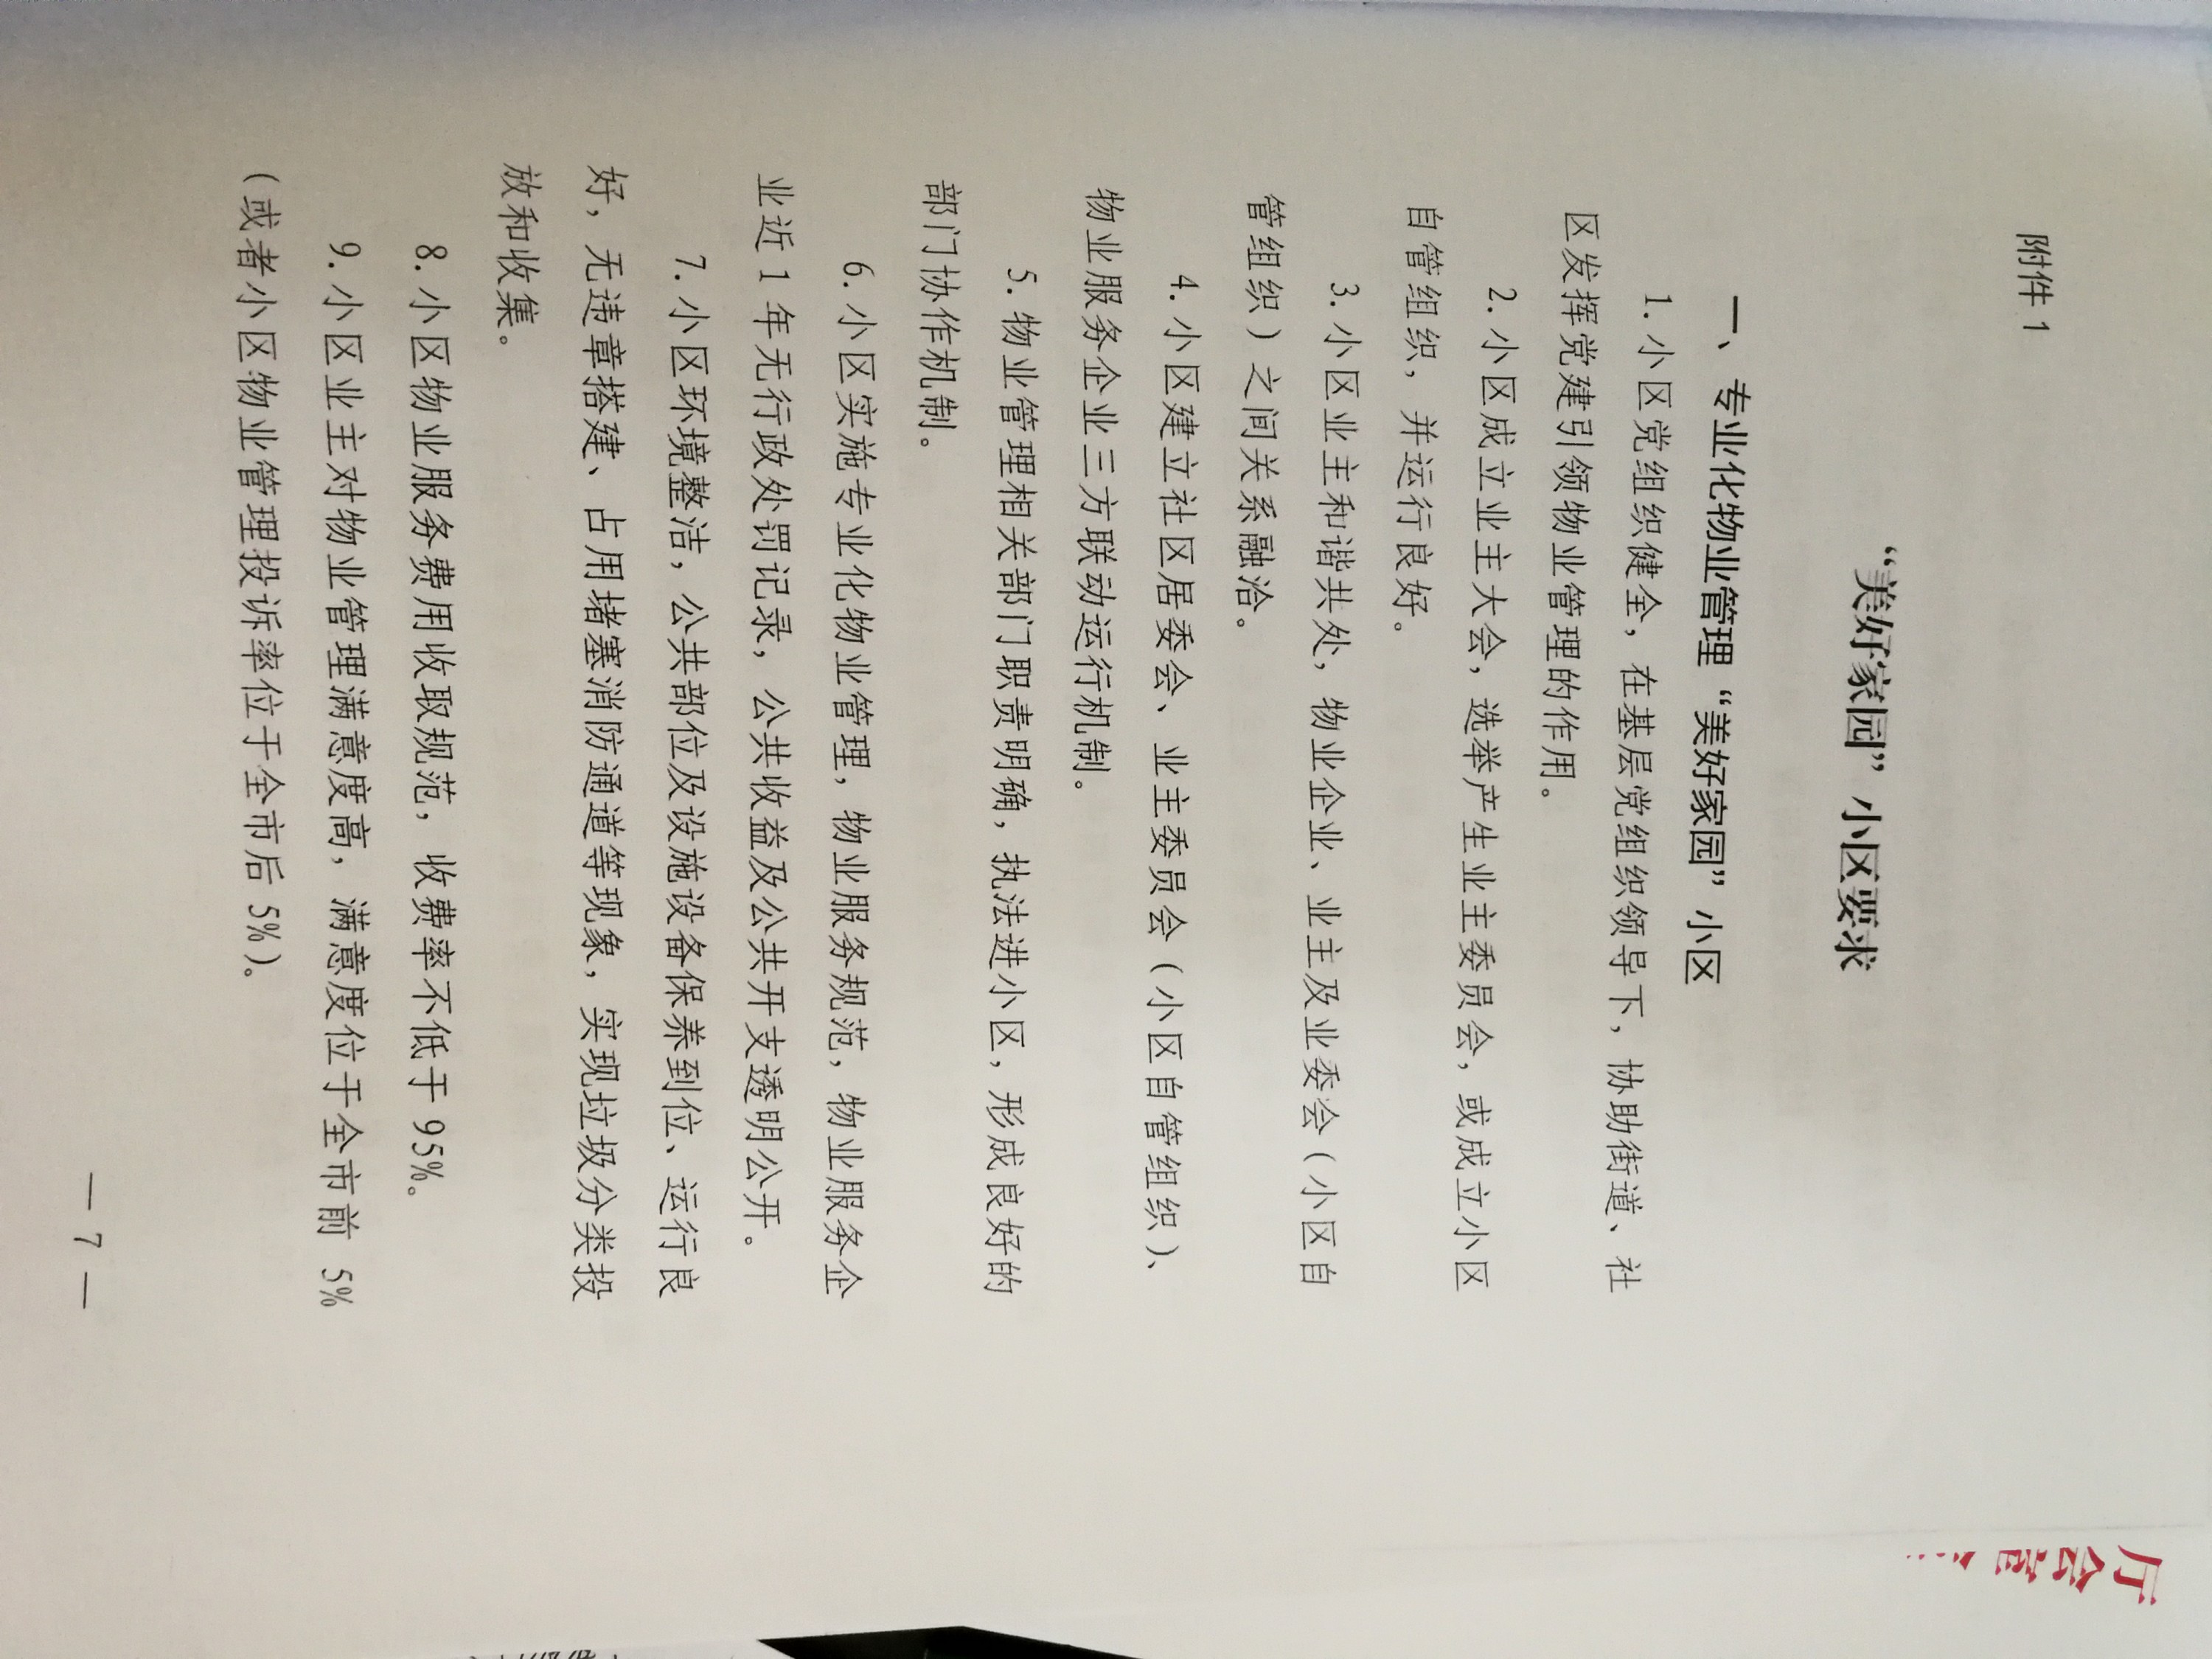 附件1
“美好家园”小区要求
一、专业化物业管理“美好家园”小区
1. 小区党组织健全，在基层党组织领导下，协助街道、社
区发挥党建引领物业管理的作用。
2. 小区成立业主大会，选举产生业主委员会，或成立小区
自管组织，并运行良好。
3. 小区业主和谐共处，物业企业、业主及业委会（小区自
管组织）之间关系融洽。
4. 小区建立社区居委会、业主委员会（小区自管组织）、
物业服务企业三方联动运行机制。
5. 物业管理相关部门职责明确，执法进小区，形成良好的
部门协作机制。
6. 小区实施专业化物业管理，物业服务规范，物业服务企
业近1年无行政处罚记录，公共收益及公共开支透明公开。
7. 小区环境整洁，公共部位及设施设备保养到位、运行良
好，无违章搭建、占用堵塞消防通道等现象，实现垃圾分类投
放和收集。
8. 小区物业服务费用收取规范，收费率不低于95%。
9. 小区业主对物业管理满意度高，满意度位于全市前 5%
（或者小区物业管理投诉率位于全市后 5%）。
— 7 —